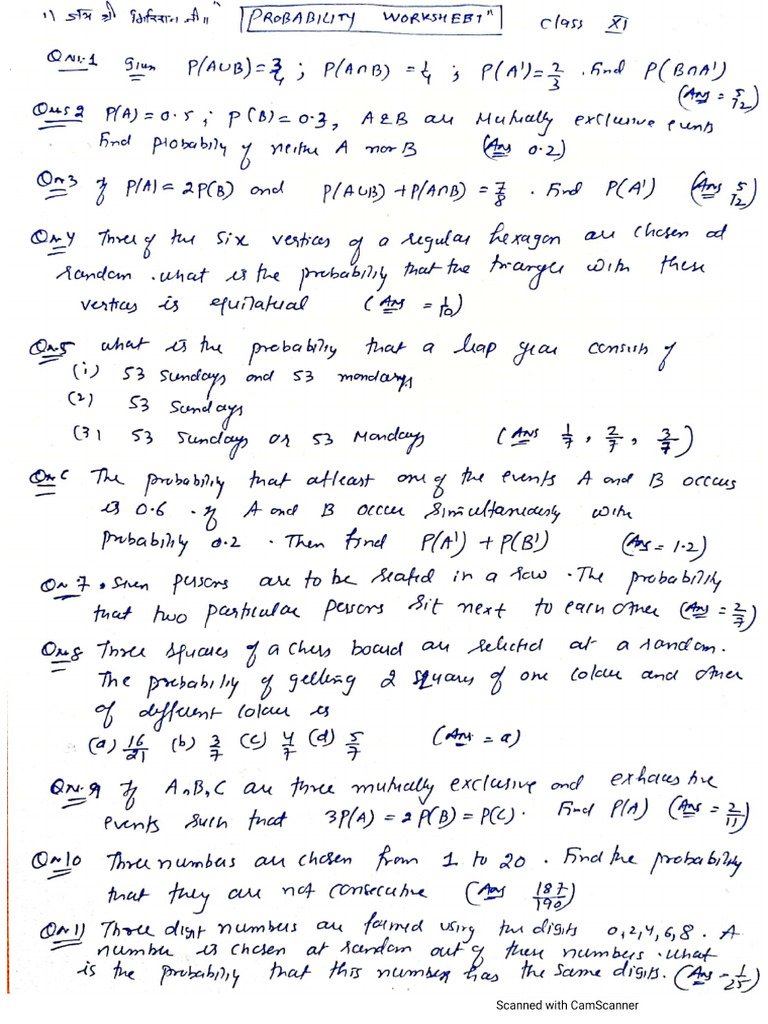 "PROBABILITY WORKSHEET" Class XI
QN:1 Given P(A∪B)=3/4 ; P(A∩B) = 1/4 ; P(A')=2/3 . Find P(B∩A')
(Ans = 5/12)
QNS 2 P(A)=0.5 ; P(B)=0.3, A & B are Mutually exclusive events
Find probability of neither A nor B (Ans 0.2)
QN3 If P(A)=2P(B) and P(A∪B)+P(A∩B)=7/8 . Find P(A') (Ans 5/12)
QN4 Three of the six vertices of a regular hexagon are chosen at
random . what is the probability that the triangle with these
vertices is equilateral (Ans = 1/10)
QN5 what is the probability that a leap year consists of
(i) 53 Sundays and 53 mondays
(2) 53 Sundays
(3) 53 Sundays or 53 Mondays (Ans 1/7 , 2/7 , 3/7)
QN6 The probability that atleast one of the events A and B occurs
is 0.6 . If A and B occur simultaneously with
probability 0.2 . Then find P(A') + P(B') (Ans = 1.2)
QN 7. Seven persons are to be seated in a row . The probability
that two particular persons sit next to each other (Ans = 2/7)
QN8 Three squares of a chess board are selected at a random.
The probability of getting 2 squares of one colour and other
of different colour is
(a) 16/21 (b) 3/7 (c) 4/7 (d) 5/7 (Ans = a)
QN.9 If A,B,C are three mutually exclusive and exhaustive
events such that 3P(A) = 2P(B) = P(C). Find P(A) (Ans = 2/11)
QN10 Three numbers are chosen from 1 to 20 . Find the probability
that they are not consecutive (Ans 187/190)
QN11 Three digit numbers are formed using the digits 0,2,4,6,8. A
number is chosen at random out of these numbers . what
is the probability that this number has the same digits. (Ans - 1/25)
Scanned with CamScanner